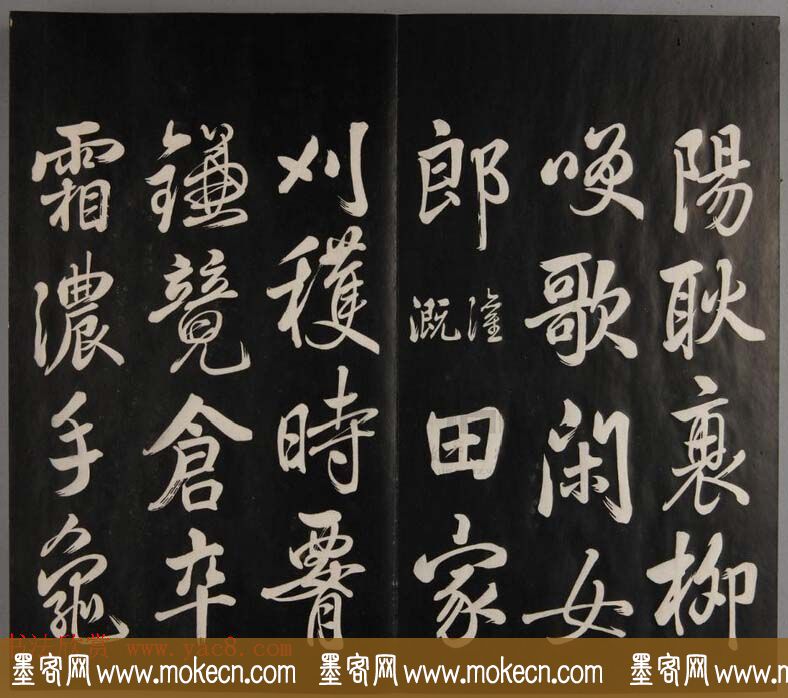 陽耿衰柳
咲歌閑女
郎灌溉田家
刈穫時腰
鎌競倉卒
霜濃手龜
书法欣赏 www.yac8.com
墨客网 www.mokecn.com 墨客网 www.mokecn.com 墨客网 www.mokecn.com